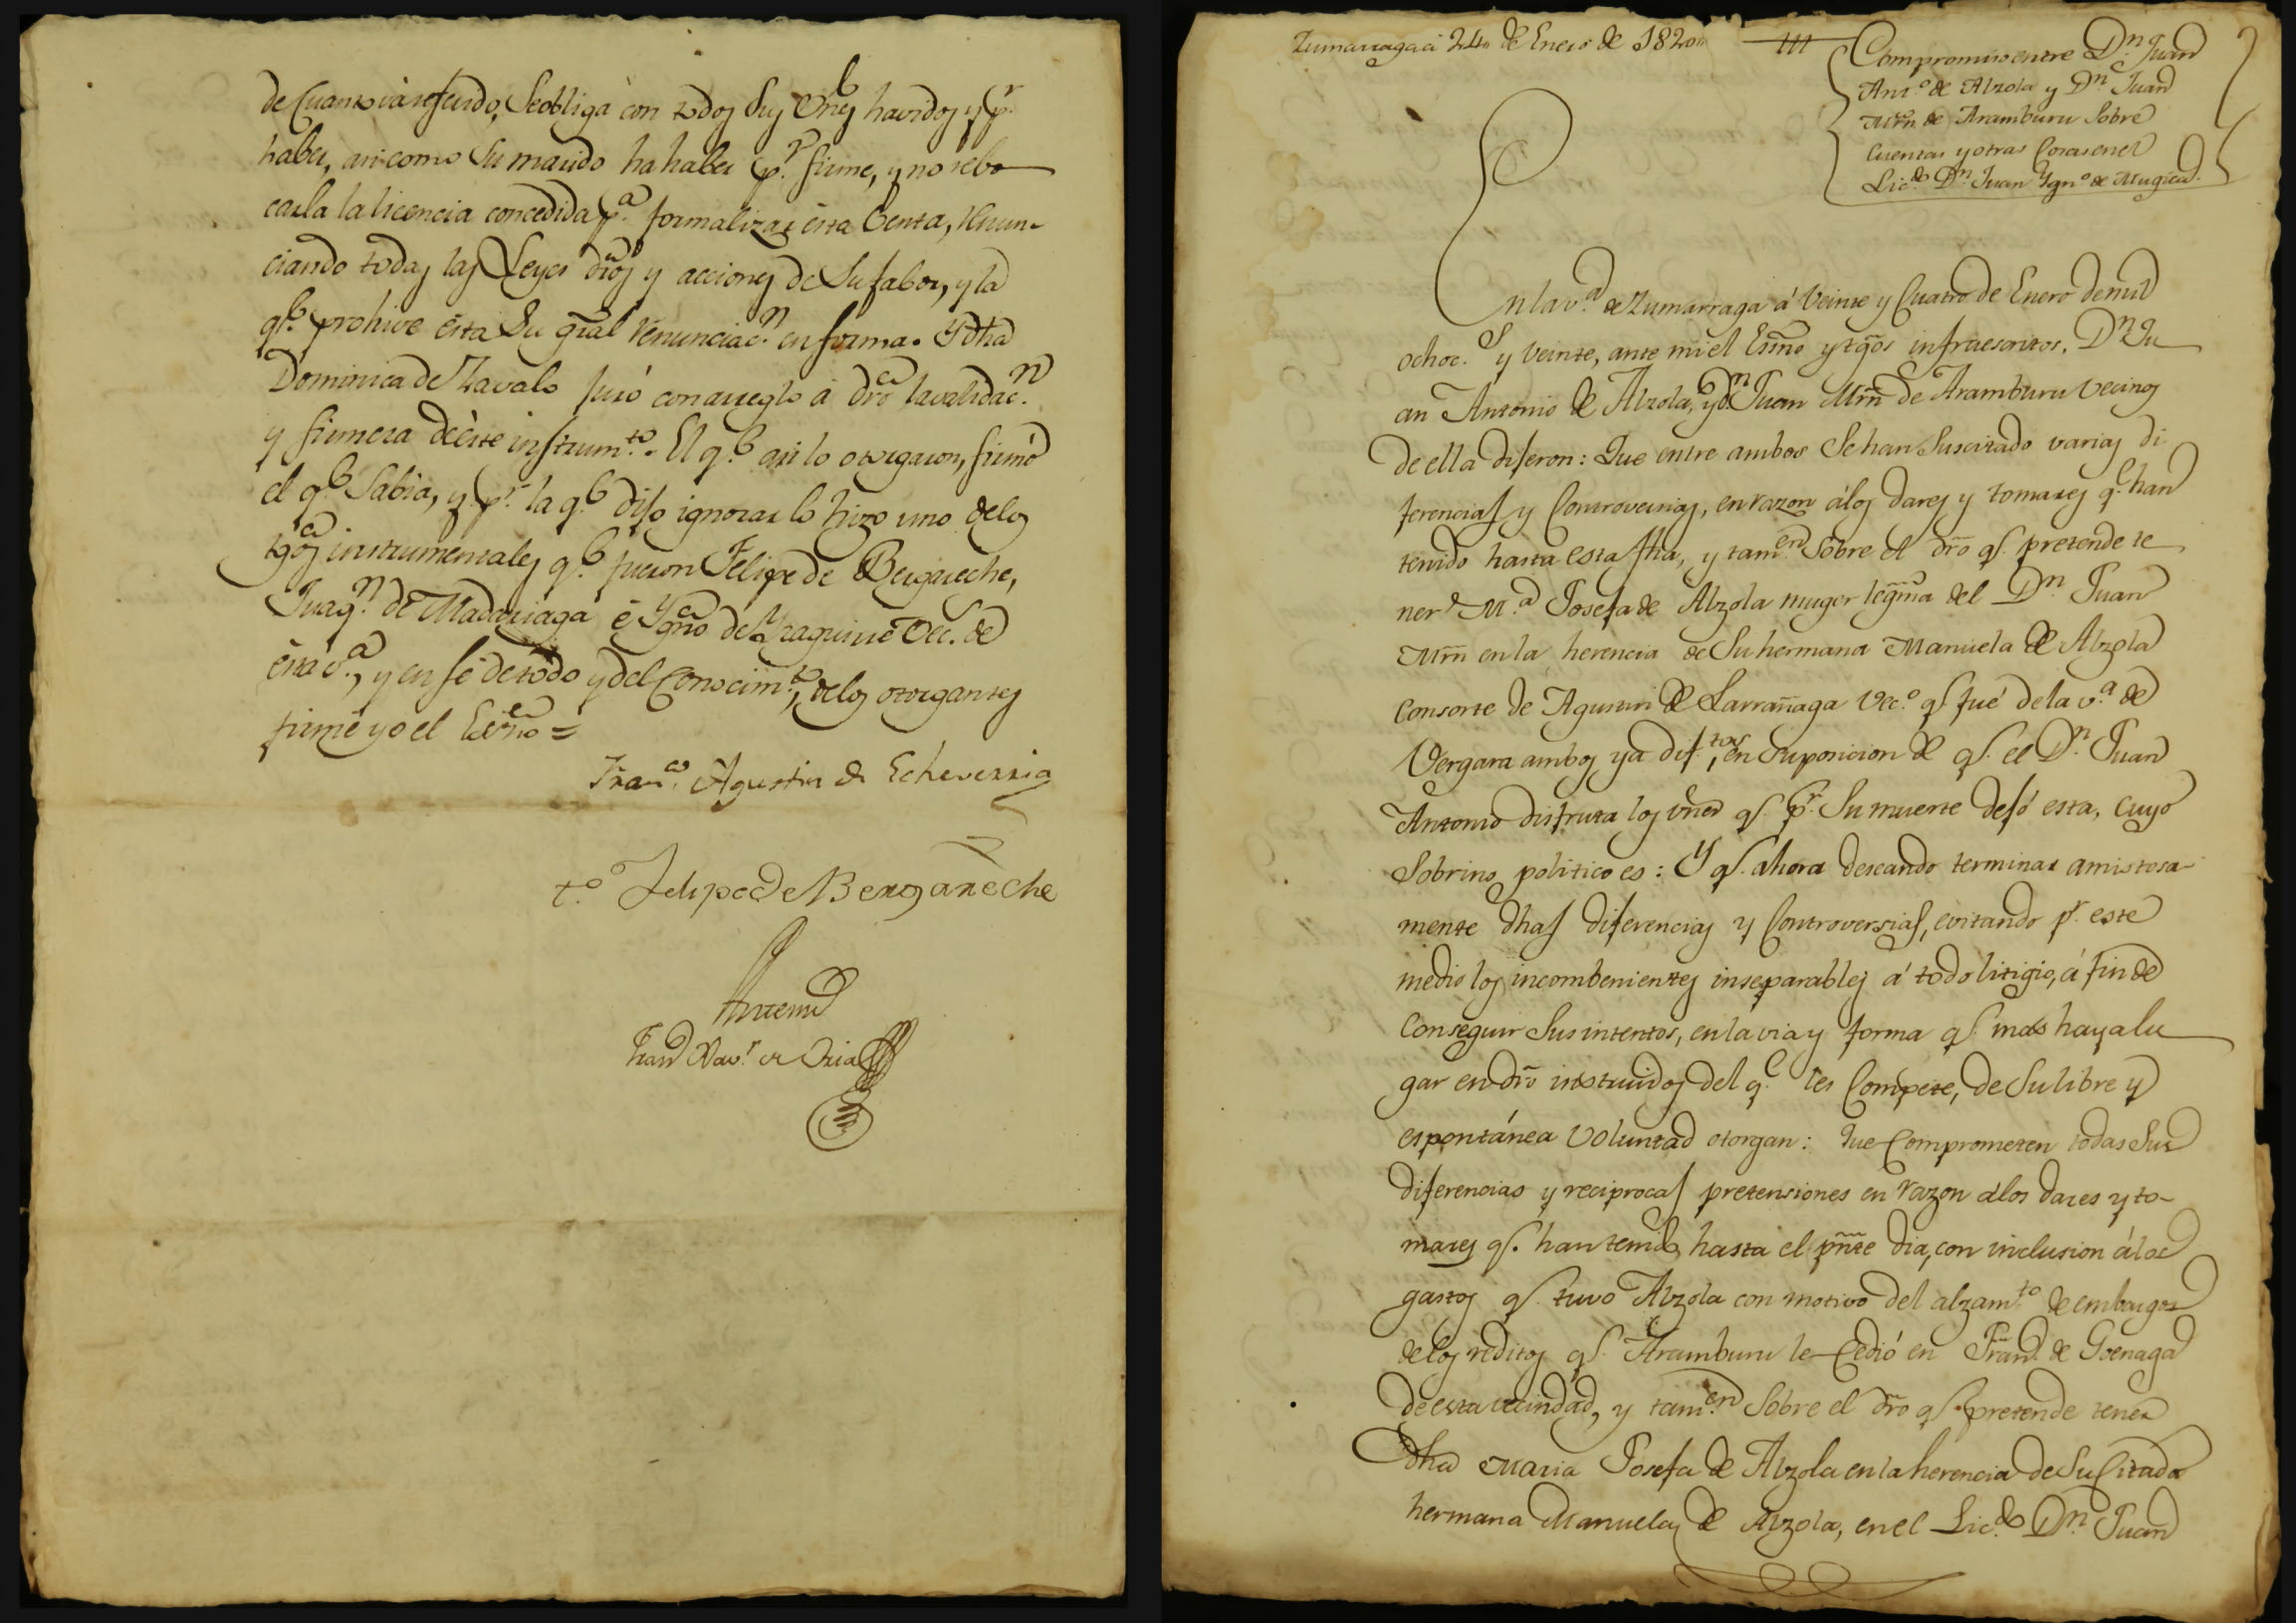 de Cuanto và referido, Seobliga con todos Sus Vnes havidos y pr.
haber, asi como Su marido ha haber pr. firme, y no rebo
carla la licencia concedida pa. formalizar ésta Venta, renun-
ciando todas las Leyes dros y acciones de Su fabor, y la
qe. prohive ésta Su gral renunciacn. en forma. Y dha
Dominica de Zavalo juró con arreglo á dro la validacn.
y firmeza de éste instrumto. El qe. asi lo otorgaron, firmó
el qe. Sabia, y pr. la qe. dijo ignorar lo hizo uno delos
tgos instrumentales qe. fueron Felipe de Bergareche,
Juaqn. de Madariaga é Ygno de Yraguirre Vec. de
ésta va., y en fé de todo y del Conocimto., delos otorgantes
firmé yo el Esno =
Franco. Agustin de Echeverria
to. Felipe de Bergareche
Antemi
Franco Xavr. de Oria
Zumarraga á 24 de Enero de 1820
Compromiso entre Dn. Juan
Anto. de Alzola y Dn. Juan
Mrn de Aramburu Sobre
Cuentas y otras Cosas en el
Licdo. Dn. Juan Ygno. de Mugica.
En la va. de Zumarraga á Veinte y Cuatro de Enero de mil
ochocs. y veinte, ante mi el Esno y tgos infraescritos, Dn. Ju
an Antonio de Alzola, y Dn. Juan Mrn de Aramburu Vecinos
de ella dijeron: Que entre ambos Se han Suscitado varias di
ferencias y Controversias, en razon álos dares y tomares qe. han
tenido hasta esta fha, y tamen. Sobre el dro qe. pretende te
ner Ma. Josefa de Alzola muger legma del Dn. Juan
Mrn en la herencia de Su hermana Manuela de Alzola
Consorte de Agustin de Larrañaga Veco. qe. fué dela va. de
Vergara ambos ya diftos., en suposicion de qe. el Dn. Juan
Antonio disfruta los vnes qe. pr. Su muerte dejó esta, cuyo
Sobrino politico es: Y qe. ahora deseando terminar amistosa-
mente dhas diferencias y Controversias, evitando pr. este
medio los incombenientes inseparables á todo litigio, á fin de
Conseguir Sus intentos, en la via y forma qe. mas haya lu
gar en dro instruidos del qe. les Compete, de Su libre y
espontánea Voluntad otorgan: Que Comprometen todas Sus
diferencias y reciprocas pretensiones en razon álos dares y to-
mares qe. han tenido hasta el pnte dia, con inclusion álos
gastos qe. tuvo Alzola con motivo del alzamto. de embargos
delos reditos qe. Aramburu le Cedió en Franco. de Goenaga
de esta vecindad, y tamen. Sobre el dro qe. pretende tener
dha Maria Josefa de Alzola en la herencia de Su Citada
hermana Manuela de Alzola, en el Licdo. Dn. Juan